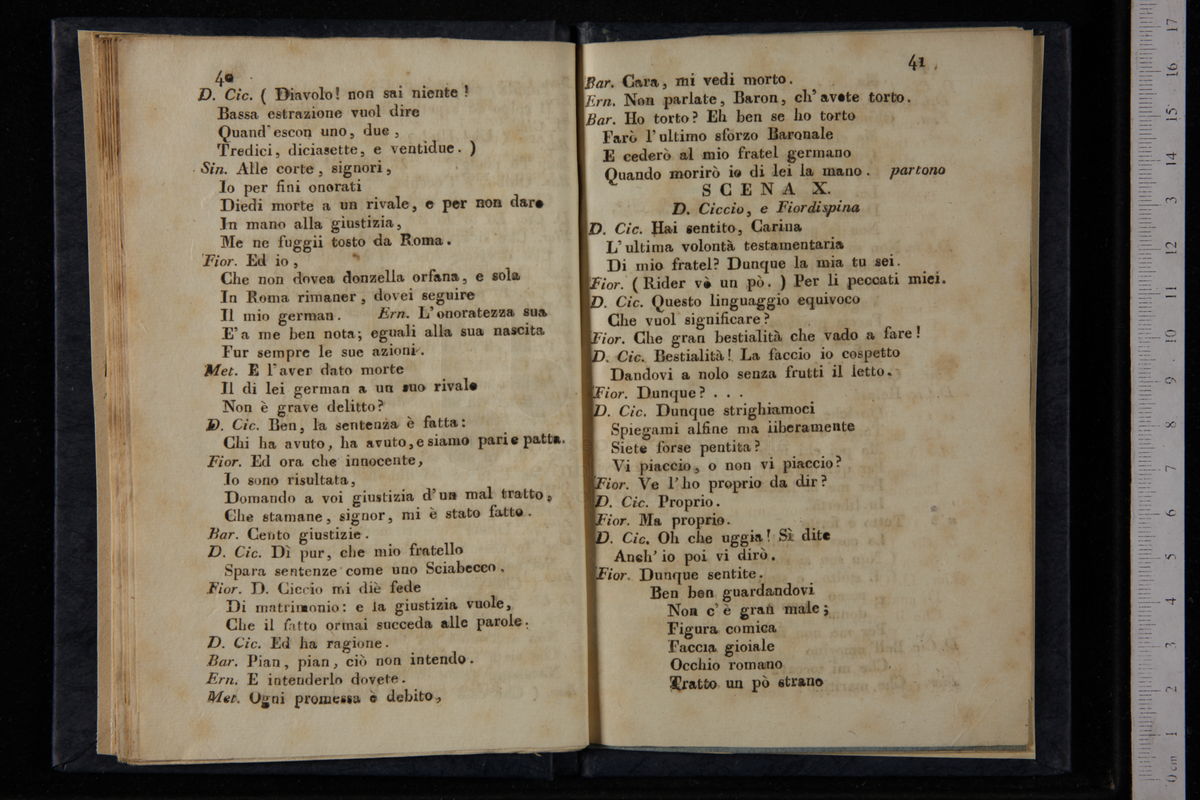 40
D. Cic. ( Diavolo! non sai niente !
Bassa estrazione vuol dire
Quand'escon uno, due ,
Tredici, diciasette, e ventidue. )
Sin. Alle corte, signori,
Io per fini onorati
Diedi morte a un rivale, e per non dare
In mano alla giustizia,
Me ne fuggii tosto da Roma.
Fior. Ed io,
Che non dovea donzella orfana, e sola
In Roma rimaner, dovei seguire
Il mio german. Ern. L'onoratezza sua
E'a me ben nota; eguali alla sua nascita
Fur sempre le sue azioni.
Met. E l'aver dato morte
Il di lei german a un suo rivale
Non è grave delitto?
D. Cic. Ben, la sentenza è fatta:
Chi ha avuto, ha avuto, e siamo pari e patta.
Fior. Ed ora che innocente,
Io sono risultata,
Domando a voi giustizia d'un mal tratto,
Che stamane, signor, mi è stato fatto.
Bar. Cento giustizie.
D. Cic. Dì pur, che mio fratello
Spara sentenze come uno Sciabecco.
Fior. D. Ciccio mi diè fede
Di matrimonio: e la giustizia vuole,
Che il fatto ormai succeda alle parole.
D. Cic. Ed ha ragione.
Bar. Pian, pian, ciò non intendo.
Ern. E intenderlo dovete.
Met. Ogni promessa è debito,
41
Bar. Cara, mi vedi morto.
Ern. Non parlate, Baron, ch'avete torto.
Bar. Ho torto? Eh ben se ho torto
Farò l'ultimo sforzo Baronale
E cederò al mio fratel germano
Quando morirò io di lei la mano. partono
SCENA X.
D. Ciccio, e Fiordispina
D. Cic. Hai sentito, Carina
L'ultima volontà testamentaria
Di mio fratel? Dunque la mia tu sei.
Fior. ( Rider vò un pò. ) Per li peccati miei.
D. Cic. Questo linguaggio equivoco
Che vuol significare?
Fior. Che gran bestialità che vado a fare!
D. Cic. Bestialità! La faccio io cospetto
Dandovi a nolo senza frutti il letto.
Fior. Dunque? . . .
D. Cic. Dunque strighiamoci
Spiegami alfine ma liberamente
Siete forse pentita?
Vi piaccio, o non vi piaccio?
Fior. Ve l'ho proprio da dir?
D. Cic. Proprio.
Fior. Ma proprio.
D. Cic. Oh che uggia! Sì dite
Anch' io poi vi dirò.
Fior. Dunque sentite.
Ben ben guardandovi
Non c'è gran male;
Figura comica
Faccia gioiale
Occhio romano
Tratto un pò strano